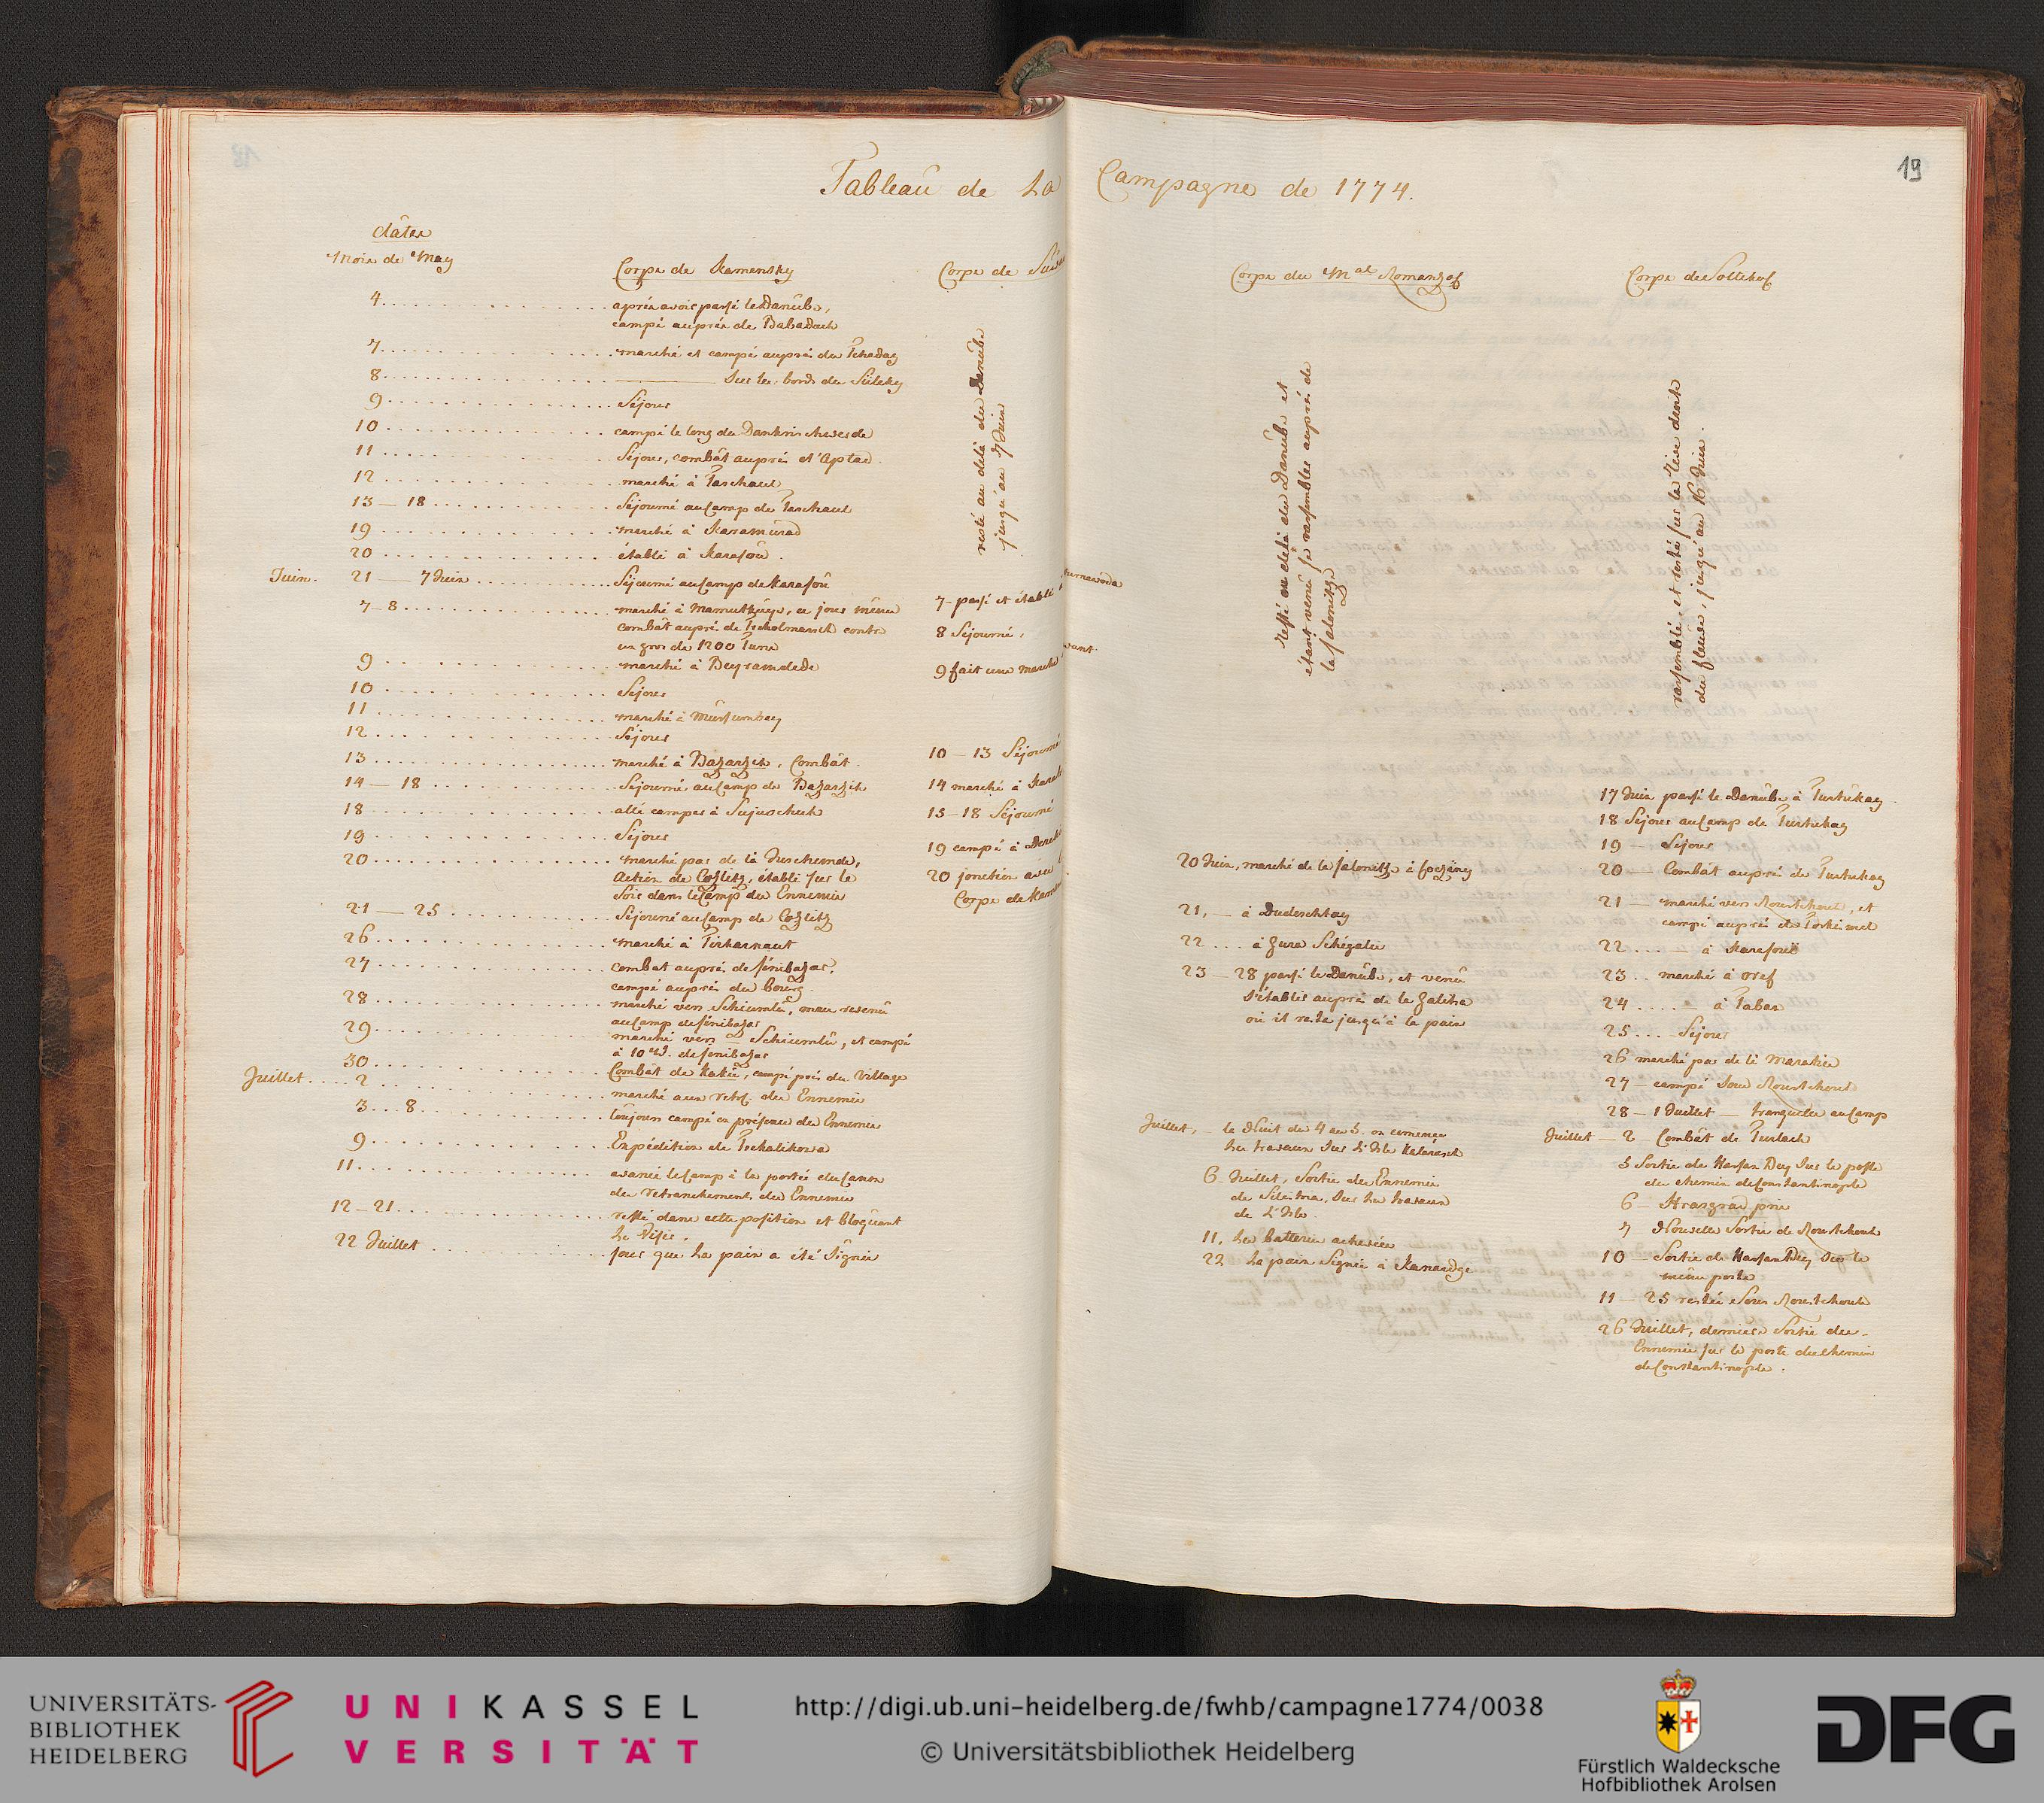 Tableau de La Campagne de 1774.
19
dâtes
Mois de May
Corps de Kamensky
4 après avoir passé le Danube,
campé auprès de Babadach
7 marché et campé auprès du Tchadag
8 sur les bords du
9 Séjour
10 campé le long du
11 Séjour, combât auprès d'Aptad
12 marché à Taschaul
13 – 18 Séjourné au Camp de Taschaul
19 marché à Karamurad
20 établi à Karasoû.
Juin. 21 — 7 Juin Séjourné au Camp de Karasoû
7–8 marché à, ce jour même
combât auprès de contre
un gros de 1200 Turcs
9 marché à Beyramdede
10 Séjour
11 marché à
12 Séjour
13 marché à Bazarzik, Combât.
14 — 18 Séjourné au Camp de Bazarzik
18 allé camper à
19 Séjour
20 marché par de là Juschende,
action de Cozlitz, établi sur le
Soir dans le Camp des Ennemis
21 — 25 Séjourné au Camp de Cozlitz
26 marché à
27 combat auprès de Jénibazar,
campé auprès du bourg.
28 marché vers Schiumlû, mais revenû
au Camp de Jénibazar
29 marché vers Schiumlû, et campé
à 10 de Jenibazar
30 Combât de campé près du Village
Juillet 2 marché aux retr. des Ennemis
3 .. 8 toujours campé en présence des Ennemis
9 Expédition de Tschalikowa
11 avancé le Camp à la portée du Canon
des retranchements des Ennemis
12 – 21 resté dans cette position et bloquant
le Visir.
22 Juillet jour que la paix a été Signée
Corps de
resté au delà du Danube
jusqu'au 7 Juin
7 – passé et établi à
8 Séjourné,
9 fait une marche
10 – 13 Séjourné
14 marché à
15 – 18 Séjourné
19 campé à
20 jonction avec
Corps de
Corps du Mal Romanzof
resté au delà du Danube et
étant venû se rassembler auprès de
la Jalonitza
20 Juin, marché de la Jalonitza à
21, — à Dudeschtay
22 .... à
23 — 28 passé le Danube, et venû
s'établir auprès de la Galitza
où il resta jusqu'à la paix
Juillet, — la Nuit du 4 au 5. on
les travaux sur l'Isle
6 – Juillet, Sortie des Ennemis
de Silistria, sur les travaux
de l'Isle.
11, les batteries achevées
22 La paix Signée à Kanardge
Corps de Soltikof
rassemblé et resté sur la rive droite
du fleuve, jusqu'au 16 Juin.
17 Juin passé le Danube à Turtukay.
18 Séjour au Camp de Turtukay
19 — Séjour
20 — Combât auprès de Turtukay
21 — marché vers Roustchouk, et
campé auprès de
22 .... — à
23 .. marché à
24 .... — à Taban
25 ... Séjour
26 marché par de là
27 — campé sous Roustchouk
28 – 1 Juillet — tranquille au Camp
Juillet — 2 Combât de
5 Sortie de Hassan Bey sur le poste
du chemin de Constantinople
6 –
7 Nouvelle Sortie de Roustchouk
10 — Sortie de Hassan Bey sur le
même poste
11 — 25 restés sous Roustchouk
26 Juillet, dernière Sortie des
Ennemis sur le poste du chemin
de Constantinople.
UNIVERSITÄTS-
BIBLIOTHEK
HEIDELBERG
UNIKASSEL
VERSITÄT
http://digi.ub.uni-heidelberg.de/fwhb/campagne1774/0038
© Universitätsbibliothek Heidelberg
Fürstlich Waldecksche
Hofbibliothek Arolsen
DFG